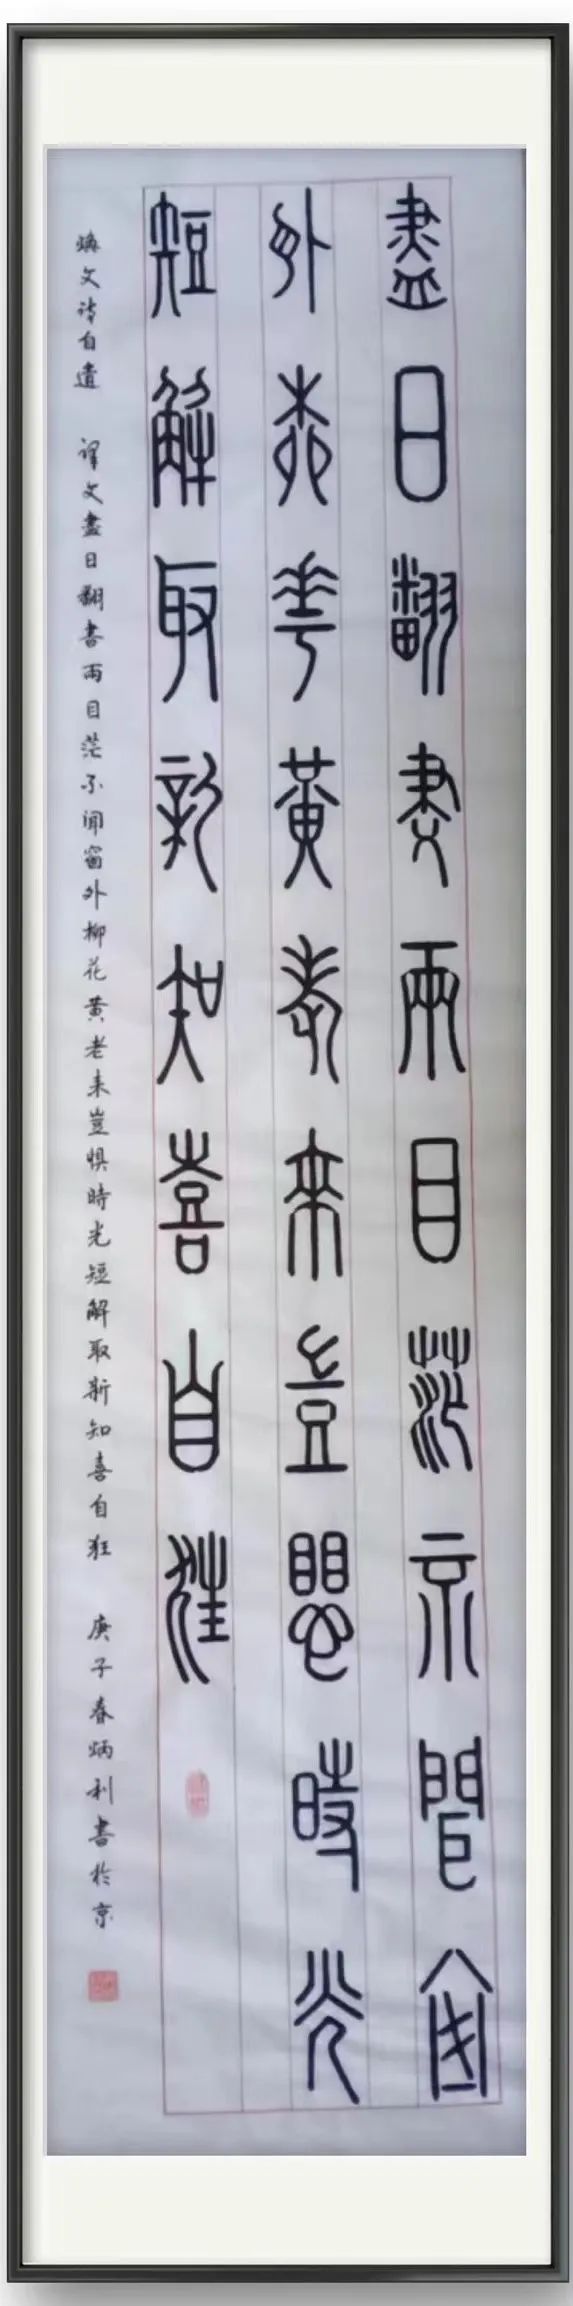 盡日翻書兩目茫不聞窗
外柳花黃老來豈懼時光
短解取新知喜自狂
煥文詩自遣 譯文盡日翻書兩目茫不聞窗外柳花黃老来豈懼時光短解取新知喜自狂 庚子春炳利書於京